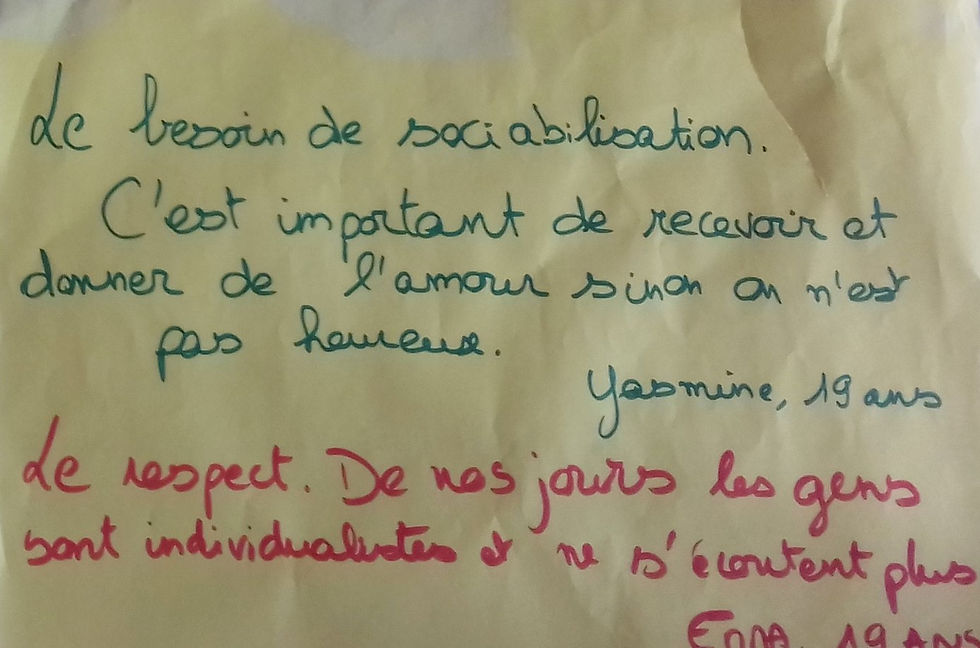 Le besoin de sociabilisation.
C'est important de recevoir et
donner de l'amour sinon on n'est
pas heureux.
Yasmine, 19 ans
Le respect. De nos jours les gens
sont individualistes et ne s'écoutent plus
19 ANS